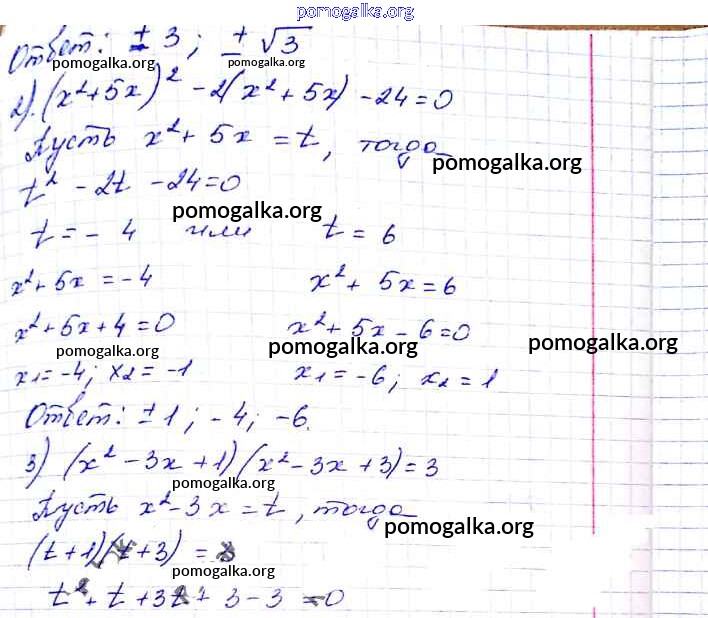 pomogalka.org
Ответ: ± 3 ; ± √3
pomogalka.org pomogalka.org
2). (x²+5x)² - 2(x²+5x) - 24=0
Пусть x²+5x = t, тогда
pomogalka.org
t² - 2t - 24=0
pomogalka.org
t = - 4 или t = 6
x²+5x = -4 x²+ 5x = 6
x²+5x+4=0 x²+5x - 6=0
pomogalka.org pomogalka.org pomogalka.org
x1=-4; x2= -1 x1=-6; x2 = 1
Ответ: ±1; -4; -6.
3) (x² -3x +1)(x²-3x +3)=3
pomogalka.org
Пусть x²-3x = t, тогда
pomogalka.org
(t+1)(t+3) = 3
pomogalka.org
t²+ t +3t+ 3 -3 =0